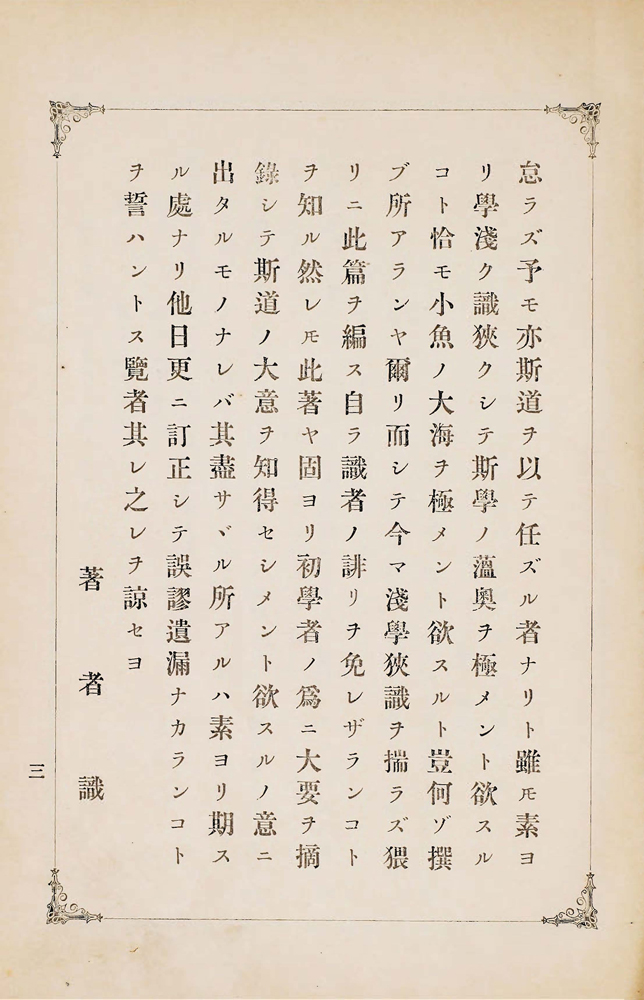 怠ラズ予モ亦斯道ヲ以テ任ズル者ナリト雖𪜈素ヨ
リ學淺ク識狹クシテ斯學ノ薀奧ヲ極メント欲スル
コト恰モ小魚ノ大海ヲ極メント欲スルト豈何ゾ撰
ブ所アランヤ爾リ而シテ今マ淺學狹識ヲ揣ラズ猥
リニ此篇ヲ編ス自ラ識者ノ誹リヲ免レザランコト
ヲ知ル然レ𪜈此著ヤ固ヨリ初學者ノ爲ニ大要ヲ摘
錄シテ斯道ノ大意ヲ知得セシメント欲スルノ意ニ
出タルモノナレバ其盡サヾル所アルハ素ヨリ期ス
ル處ナリ他日更ニ訂正シテ誤謬遺漏ナカランコト
ヲ誓ハントス覽者其レ之レヲ諒セヨ
著者識
三